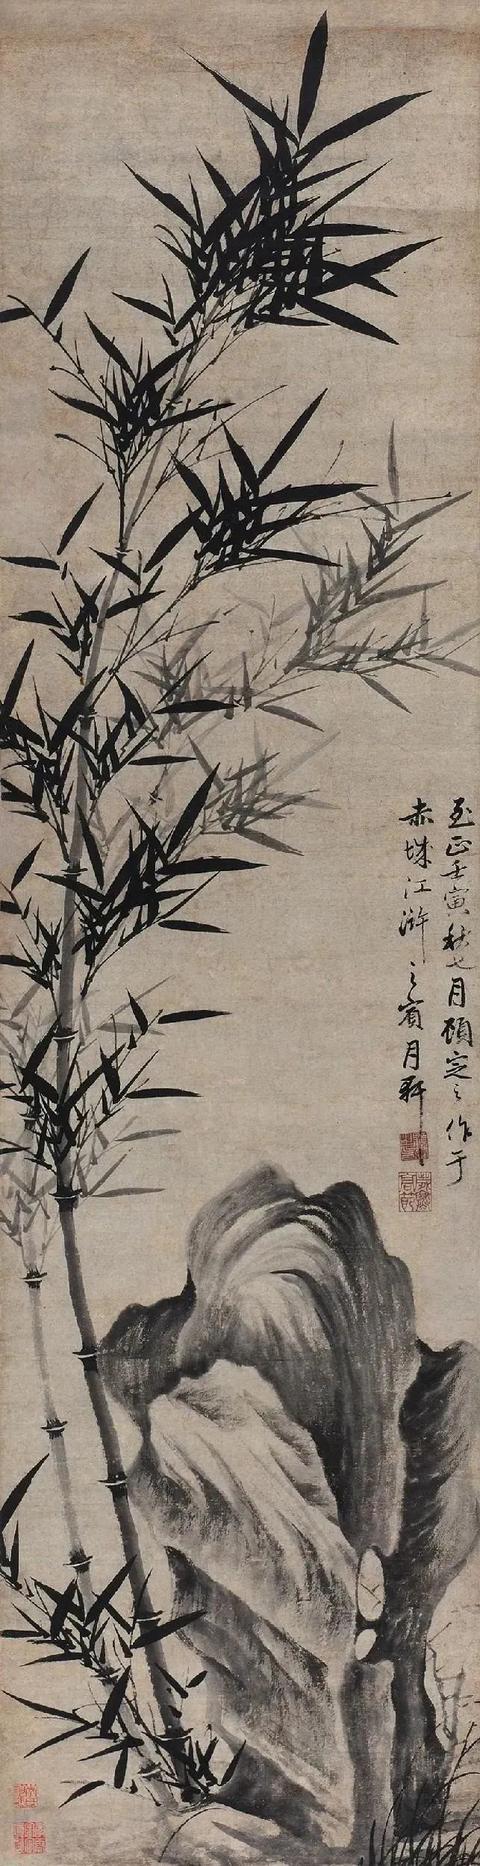 至正壬寅秋七月顾定之作于
赤城江浒之宾月轩